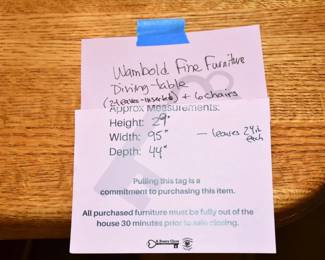 Wambold Fine Furniture
Dining-table
(2 Leaves - inserted) + 6 chairs
Approx Measurements:
Height: 29"
Width: 95" — leaves 24in
each
Depth: 44"
Pulling this tag is a
commitment to purchasing this item.
All purchased furniture must be fully out of the
house 30 minutes prior to sale closing.